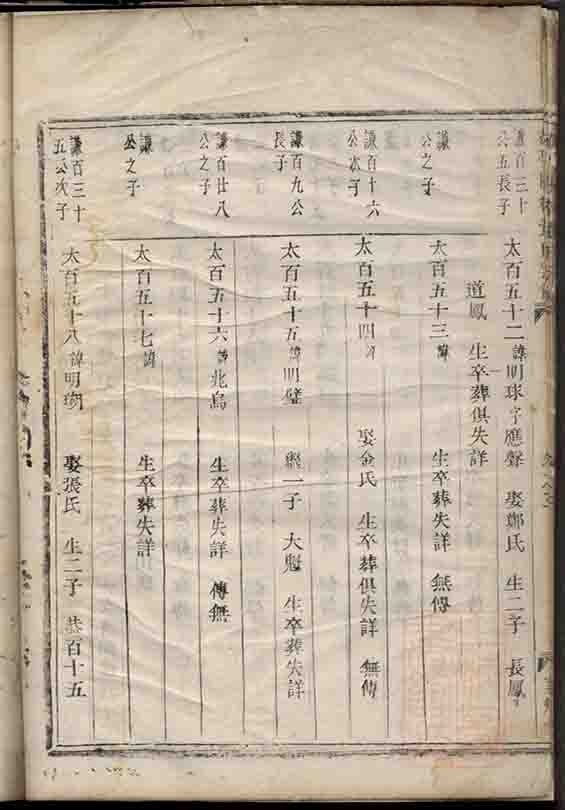 謙百三十
公五長子
太百五十二諱明球字應聲 娶鄭氏 生二子 長鳳
道鳳 生卒葬俱失詳
謙
公之子
太百五十三諱 生卒葬失詳 無傳
謙百十六
公次子
太百五十四諱 娶金氏 生卒葬俱失詳 無傳
謙百九公
長子
太百五十五諱明 一子 大魁 生卒葬失詳
謙百廿八
公之子
太百五十六諱兆 生卒葬失詳 傳無
謙
公之子
太百五十七諱 生卒葬失詳
謙百三十
五公次子
太百五十八諱明 娶張氏 生二子 恭百十五